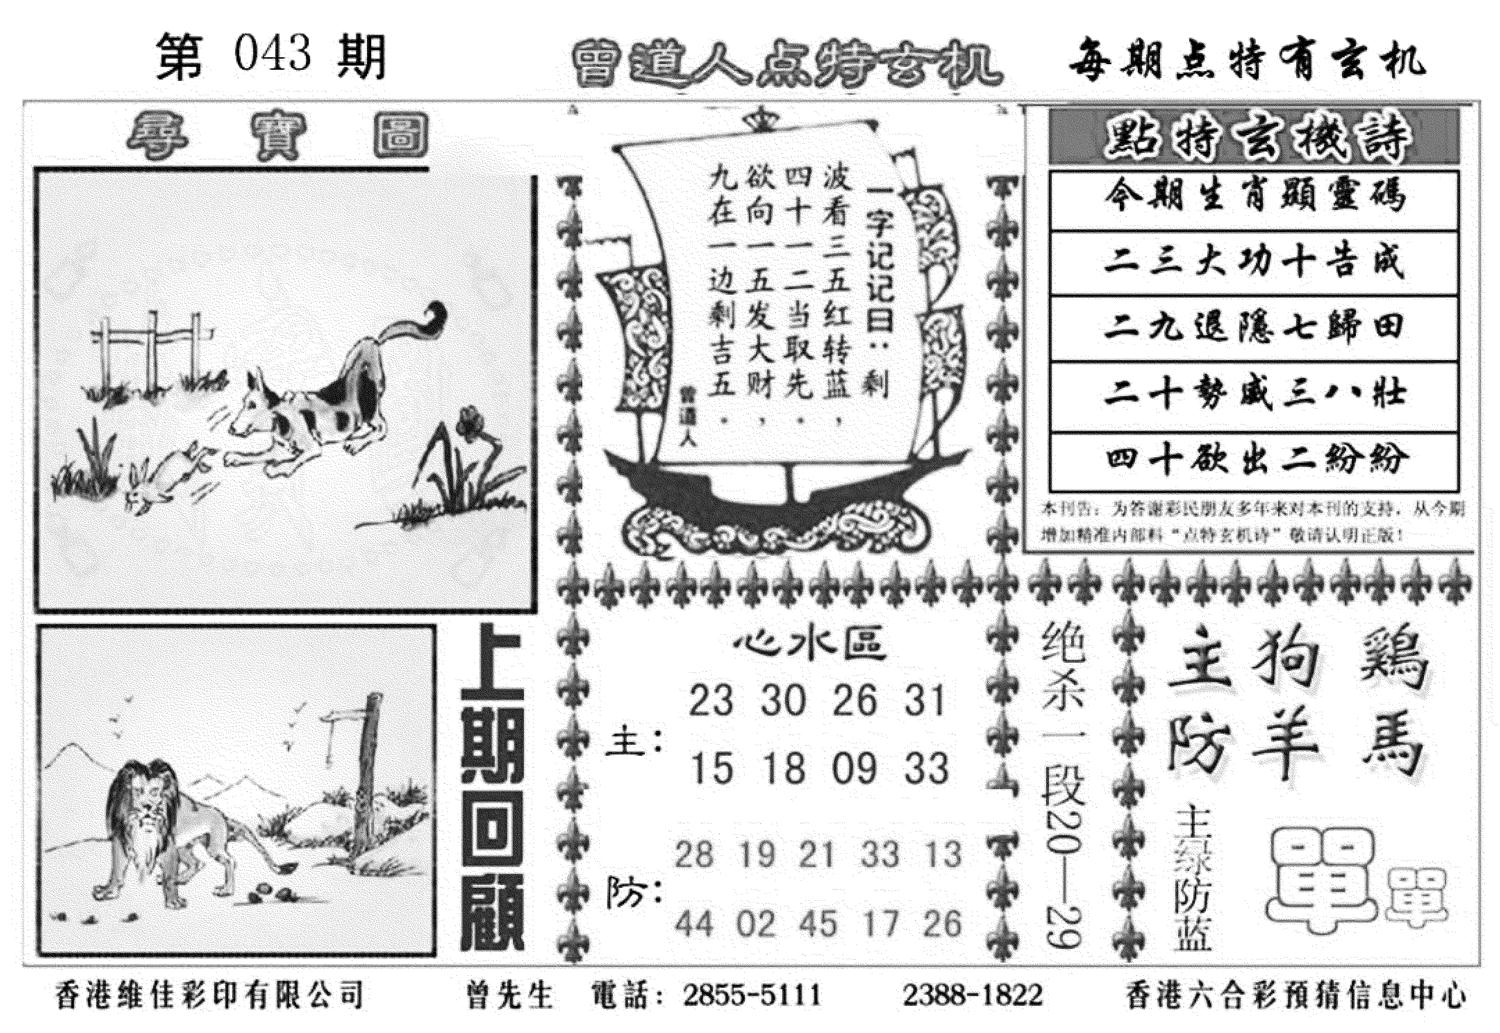 第 043 期
曾道人点特玄机
每期点特有玄机
尋寶圖
一字记记曰：剩
波看三五红转蓝，
四十一二当取先。
欲向一五发大财，
九在一边剩吉五。
曾道人
點特玄機詩
今期生肖顯靈碼
二三大功十告成
二九退隱七歸田
二十勢威三八壯
四十欲出二紛紛
本刊告：为答谢彩民朋友多年来对本刊的支持，从今期
增加精准内部料“点特玄机诗”敬请认明正版！
上期回顧
心水區
主：
23 30 26 31
15 18 09 33
防：
28 19 21 33 13
44 02 45 17 26
绝杀一段20—29
主狗鷄
防羊馬
主绿防蓝
單單
香港維佳彩印有限公司 曾先生 電話：2855-5111 2388-1822 香港六合彩預猜信息中心